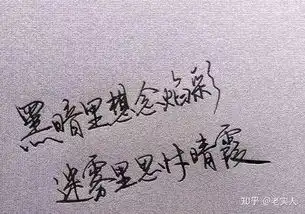 黑暗里想念焰彩
迷雾里思忖晴霞
知乎 @老实人